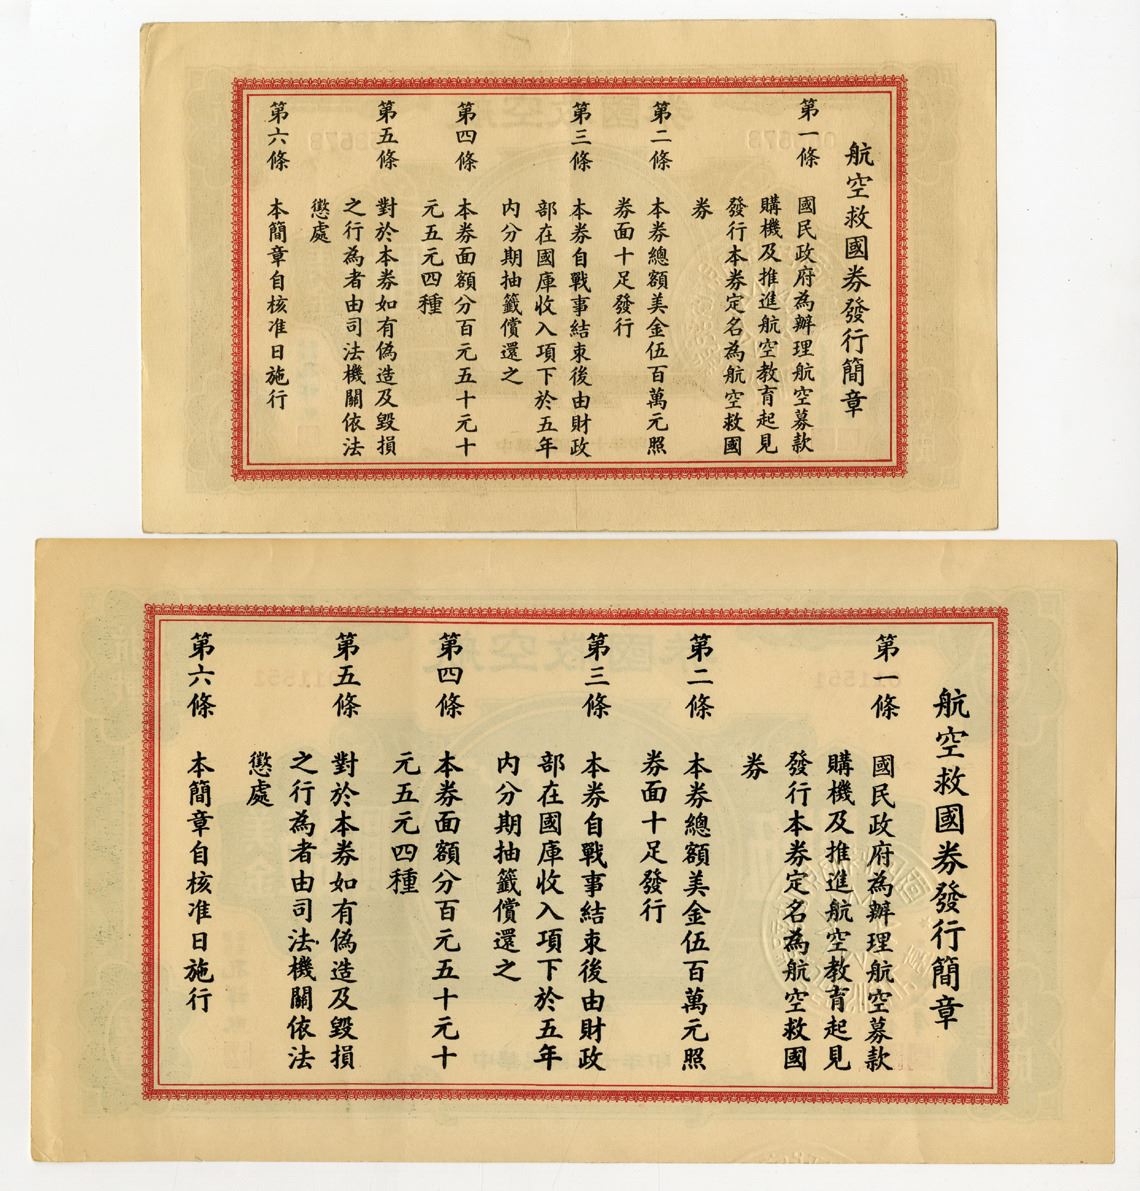 航空救國券發行簡章
第一條 國民政府為辦理航空募款
購機及推進航空教育起見
發行本券定名為航空救國
券
第二條 本券總額美金伍百萬元照
券面十足發行
第三條 本券自戰事結束後由財政
部在國庫收入項下於五年
內分期抽籤償還之
第四條 本券面額分百元五十元十
元五元四種
第五條 對於本券如有偽造及毀損
之行為者由司法機關依法
懲處
第六條 本簡章自核准日施行
航空救國券發行簡章
第一條 國民政府為辦理航空募款
購機及推進航空教育起見
發行本券定名為航空救國
券
第二條 本券總額美金伍百萬元照
券面十足發行
第三條 本券自戰事結束後由財政
部在國庫收入項下於五年
內分期抽籤償還之
第四條 本券面額分百元五十元十
元五元四種
第五條 對於本券如有偽造及毀損
之行為者由司法機關依法
懲處
第六條 本簡章自核准日施行